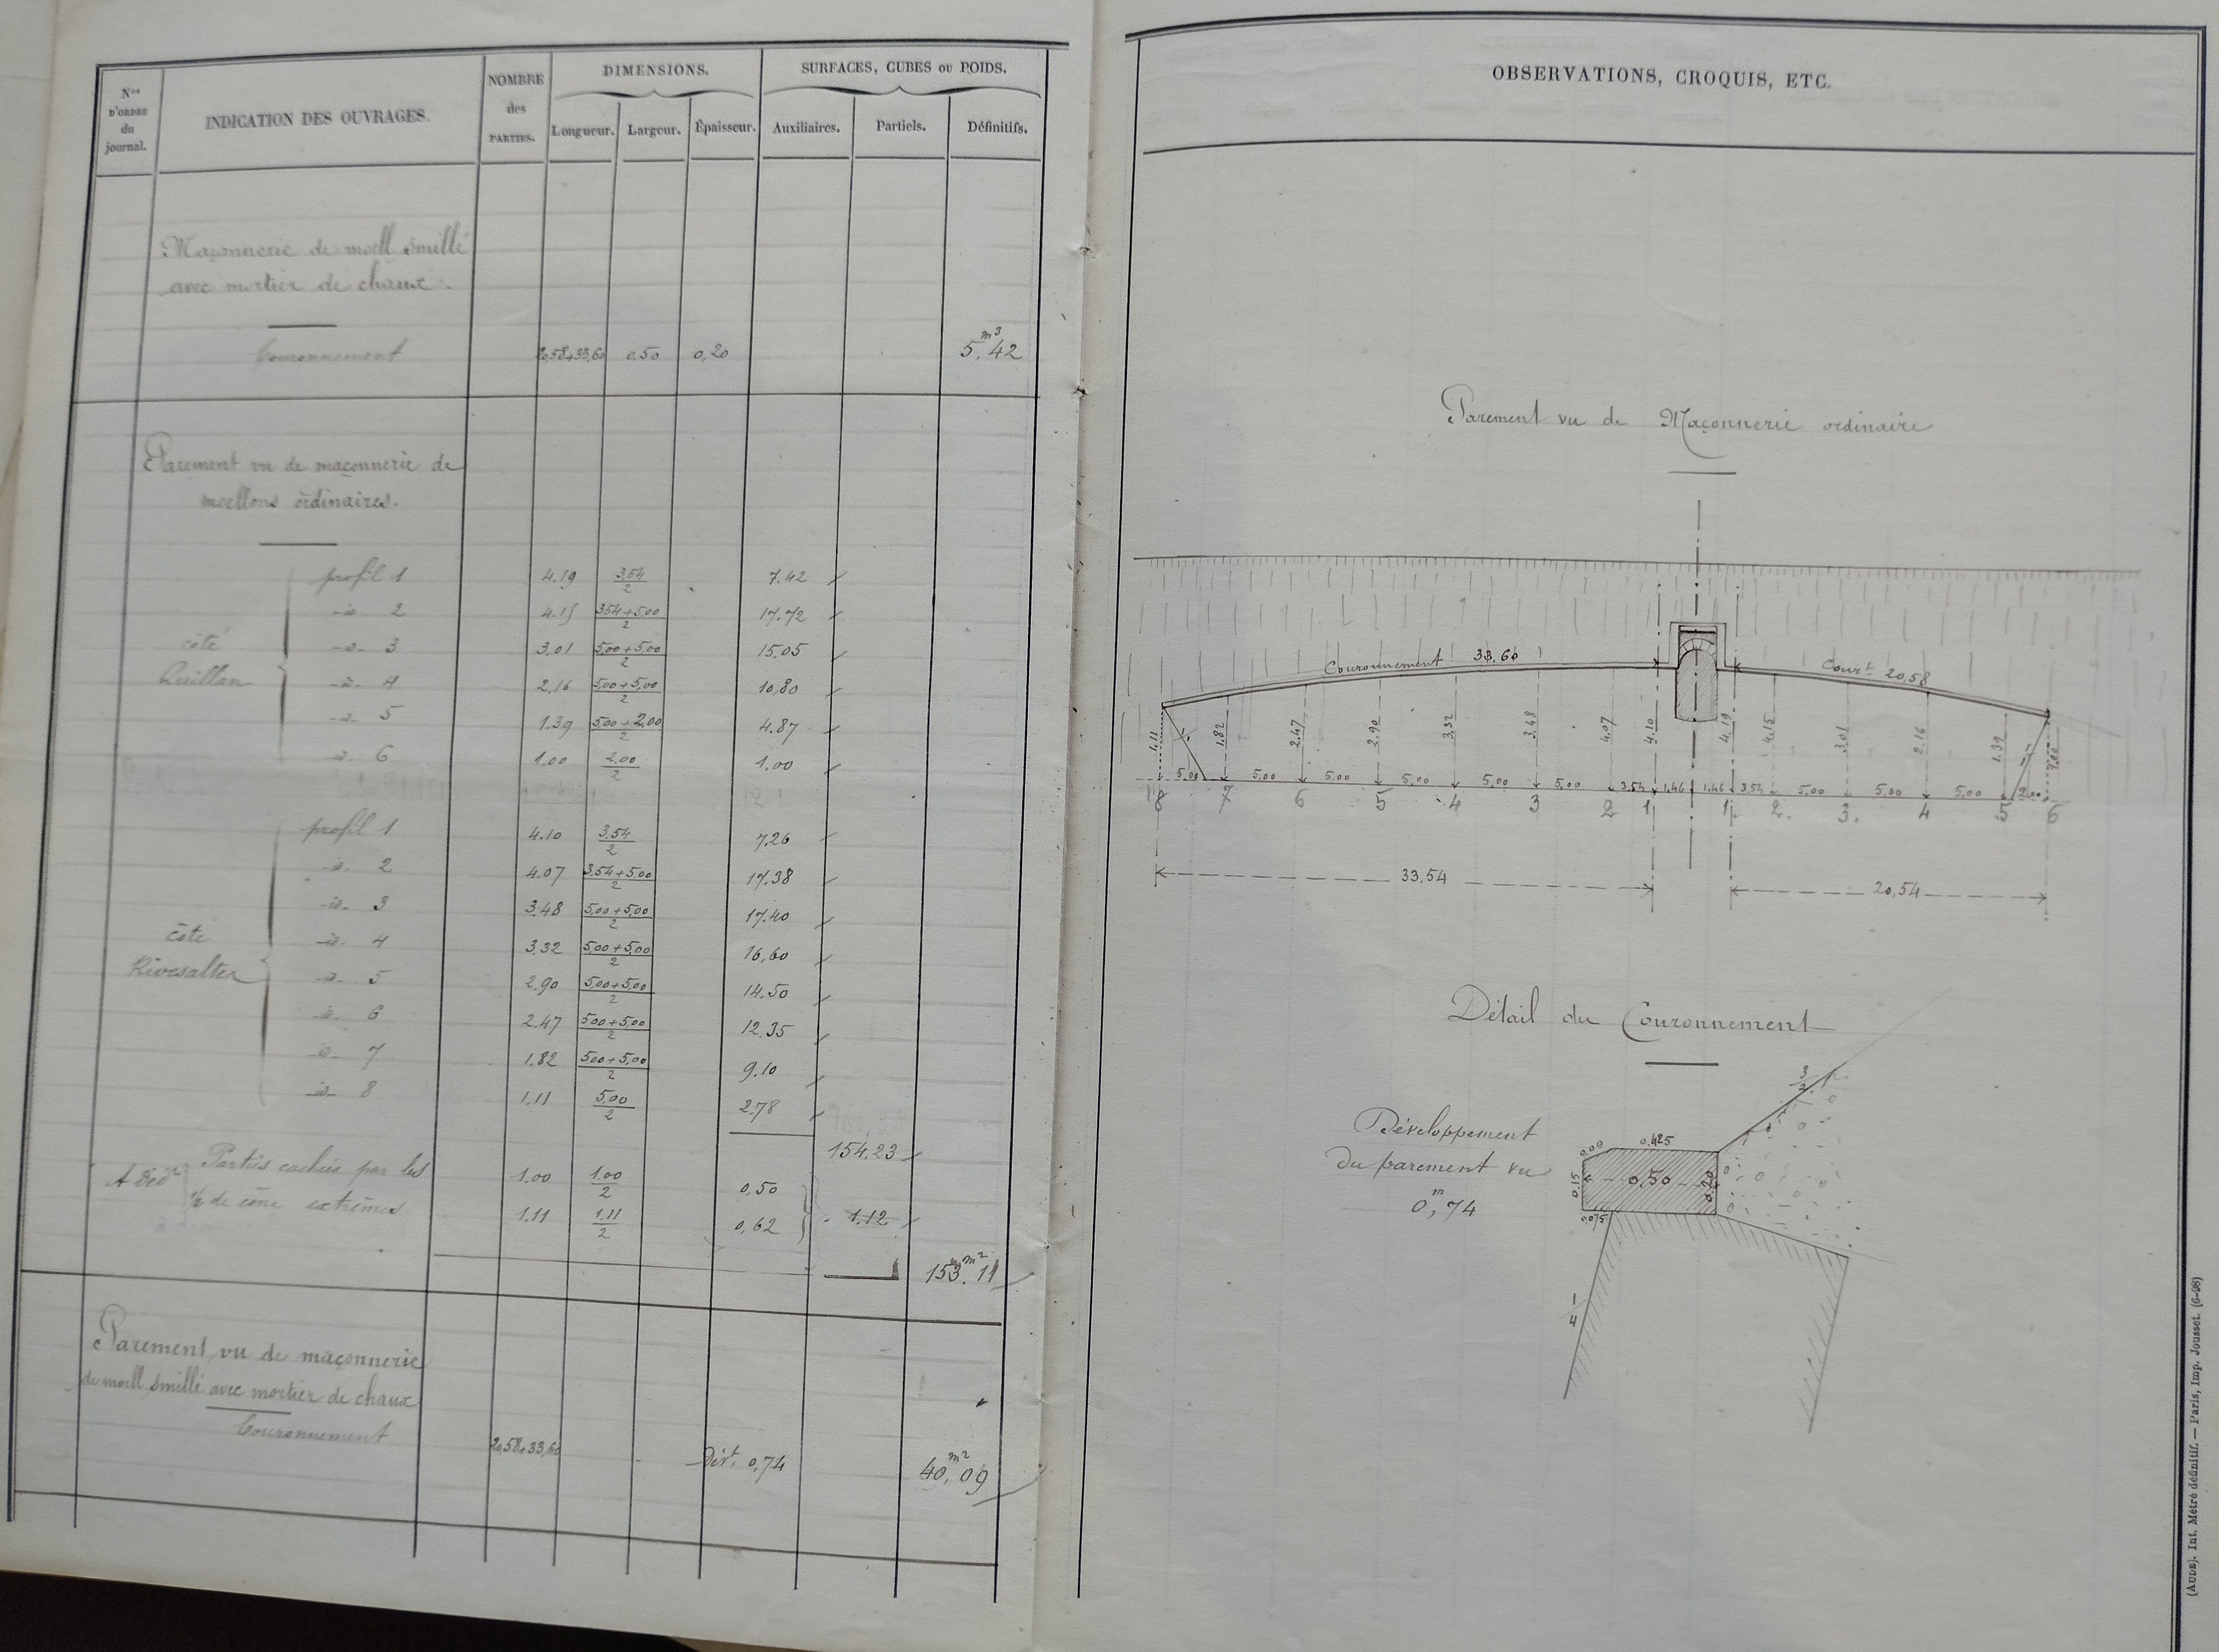 Nos
D'ORDRE
du
journal.
INDICATION DES OUVRAGES.
NOMBRE
des
PARTIES.
DIMENSIONS.
Longueur. Largeur. Épaisseur.
SURFACES, CUBES ou POIDS.
Auxiliaires. Partiels. Définitifs.
Maçonnerie de moell smillé
avec mortier de chaux.
Couronnement 20,58+33,60 0,50 0,20 5.42 m3
Parement vu de maçonnerie de
moellons ordinaires.
côté
Quillan
profil 1 4.19 3,54/2 7.42
-id- 2 4.15 3,54+5,00/2 17.72
-id- 3 3,01 5,00+5,00/2 15,05
-id- 4 2,16 5,00+5,00/2 10,80
-id- 5 1.39 5,00+2,00/2 4.87
-id- 6 1.00 2,00/2 1.00
côté
Rivesaltes
profil 1 4.10 3,54/2 7.26
-id- 2 4.07 3,54+5,00/2 17.38
-id- 3 3.48 5,00+5,00/2 17.40
-id- 4 3.32 5,00+5,00/2 16,60
-id- 5 2.90 5,00+5,00/2 14.50
-id- 6 2.47 5,00+5,00/2 12.35
-id- 7 1.82 5,00+5,00/2 9.10
-id- 8 1.11 5,00/2 2.78
154.23
A Dedre Parties cachées par les 1.00 1.00/2 0,50
1/2 de cône extrêmes 1.11 1,11/2 0,62 1.12
153.11 m2
Parement vu de maçonnerie
de moell smillé avec mortier de chaux
Couronnement 20,58+33,60 Devt. 0,74 40,09 m2
OBSERVATIONS, CROQUIS, ETC.
Parement vu de Maçonnerie ordinaire
Couronnement 33.60
Court. 20,58
1.11 1.82 2.47 2.90 3.32 3.48 4.07 4.10 4.19 4.15 3.01 2.16 1.39 1.00
5.00 5,00 5,00 5,00 5,00 5,00 3,54 1,46 1,46 3,54 5,00 5,00 5,00 2,00
8 7 6 5 4 3 2 1 1 2. 3. 4 5 6
33.54
20,54
Détail du Couronnement
3/2
Développement
du parement vu
0,74 m
0.09
0,425
0.15
0,50
0.20
0.075
1/4
(AUDE). Int. Métré définitif. — Paris, Imp. Jousset. (6-98)